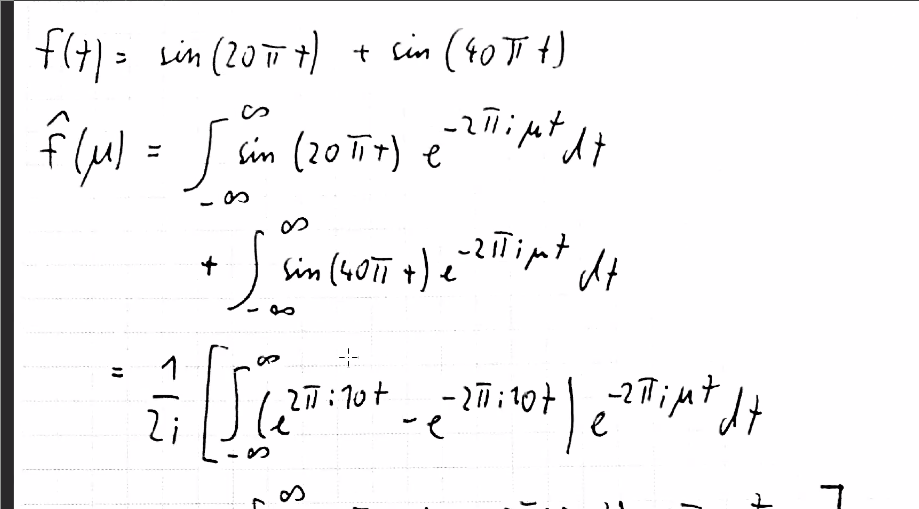 f(t) = sin(20πt) + sin(40πt)
f̂(μ) = ∫_{-∞}^{∞} sin(20πt) e^{-2πiμt} dt
+ ∫_{-∞}^{∞} sin(40πt) e^{-2πiμt} dt
= 1/2i [ ∫_{-∞}^{∞} (e^{2πi10t} - e^{-2πi10t}) e^{-2πiμt} dt